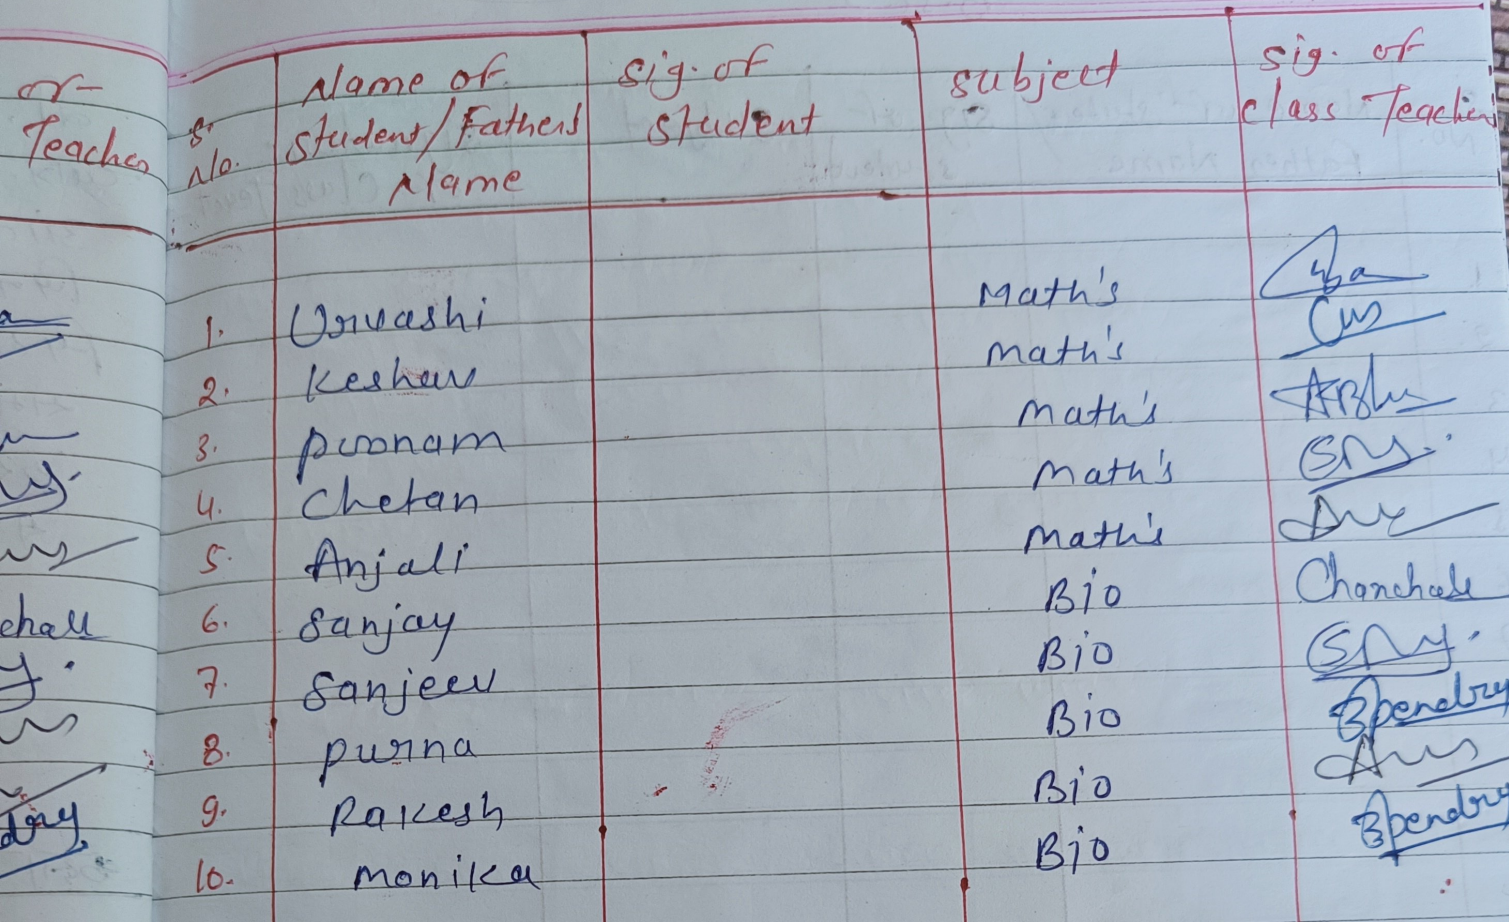 or
Teacher
S.
No.
Name of
Student/Fathers
Name
Sig. of
Student
Subject
Sig. of
class Teacher
1. Urvashi Math's
2. Keshav Math's
3. Poonam Math's
4. Chetan Math's
5. Anjali Math's
6. Sanjay Bio Chanchal
7. Sanjeev Bio
8. Purna Bio
9. Rakesh Bio
10. Monika Bio